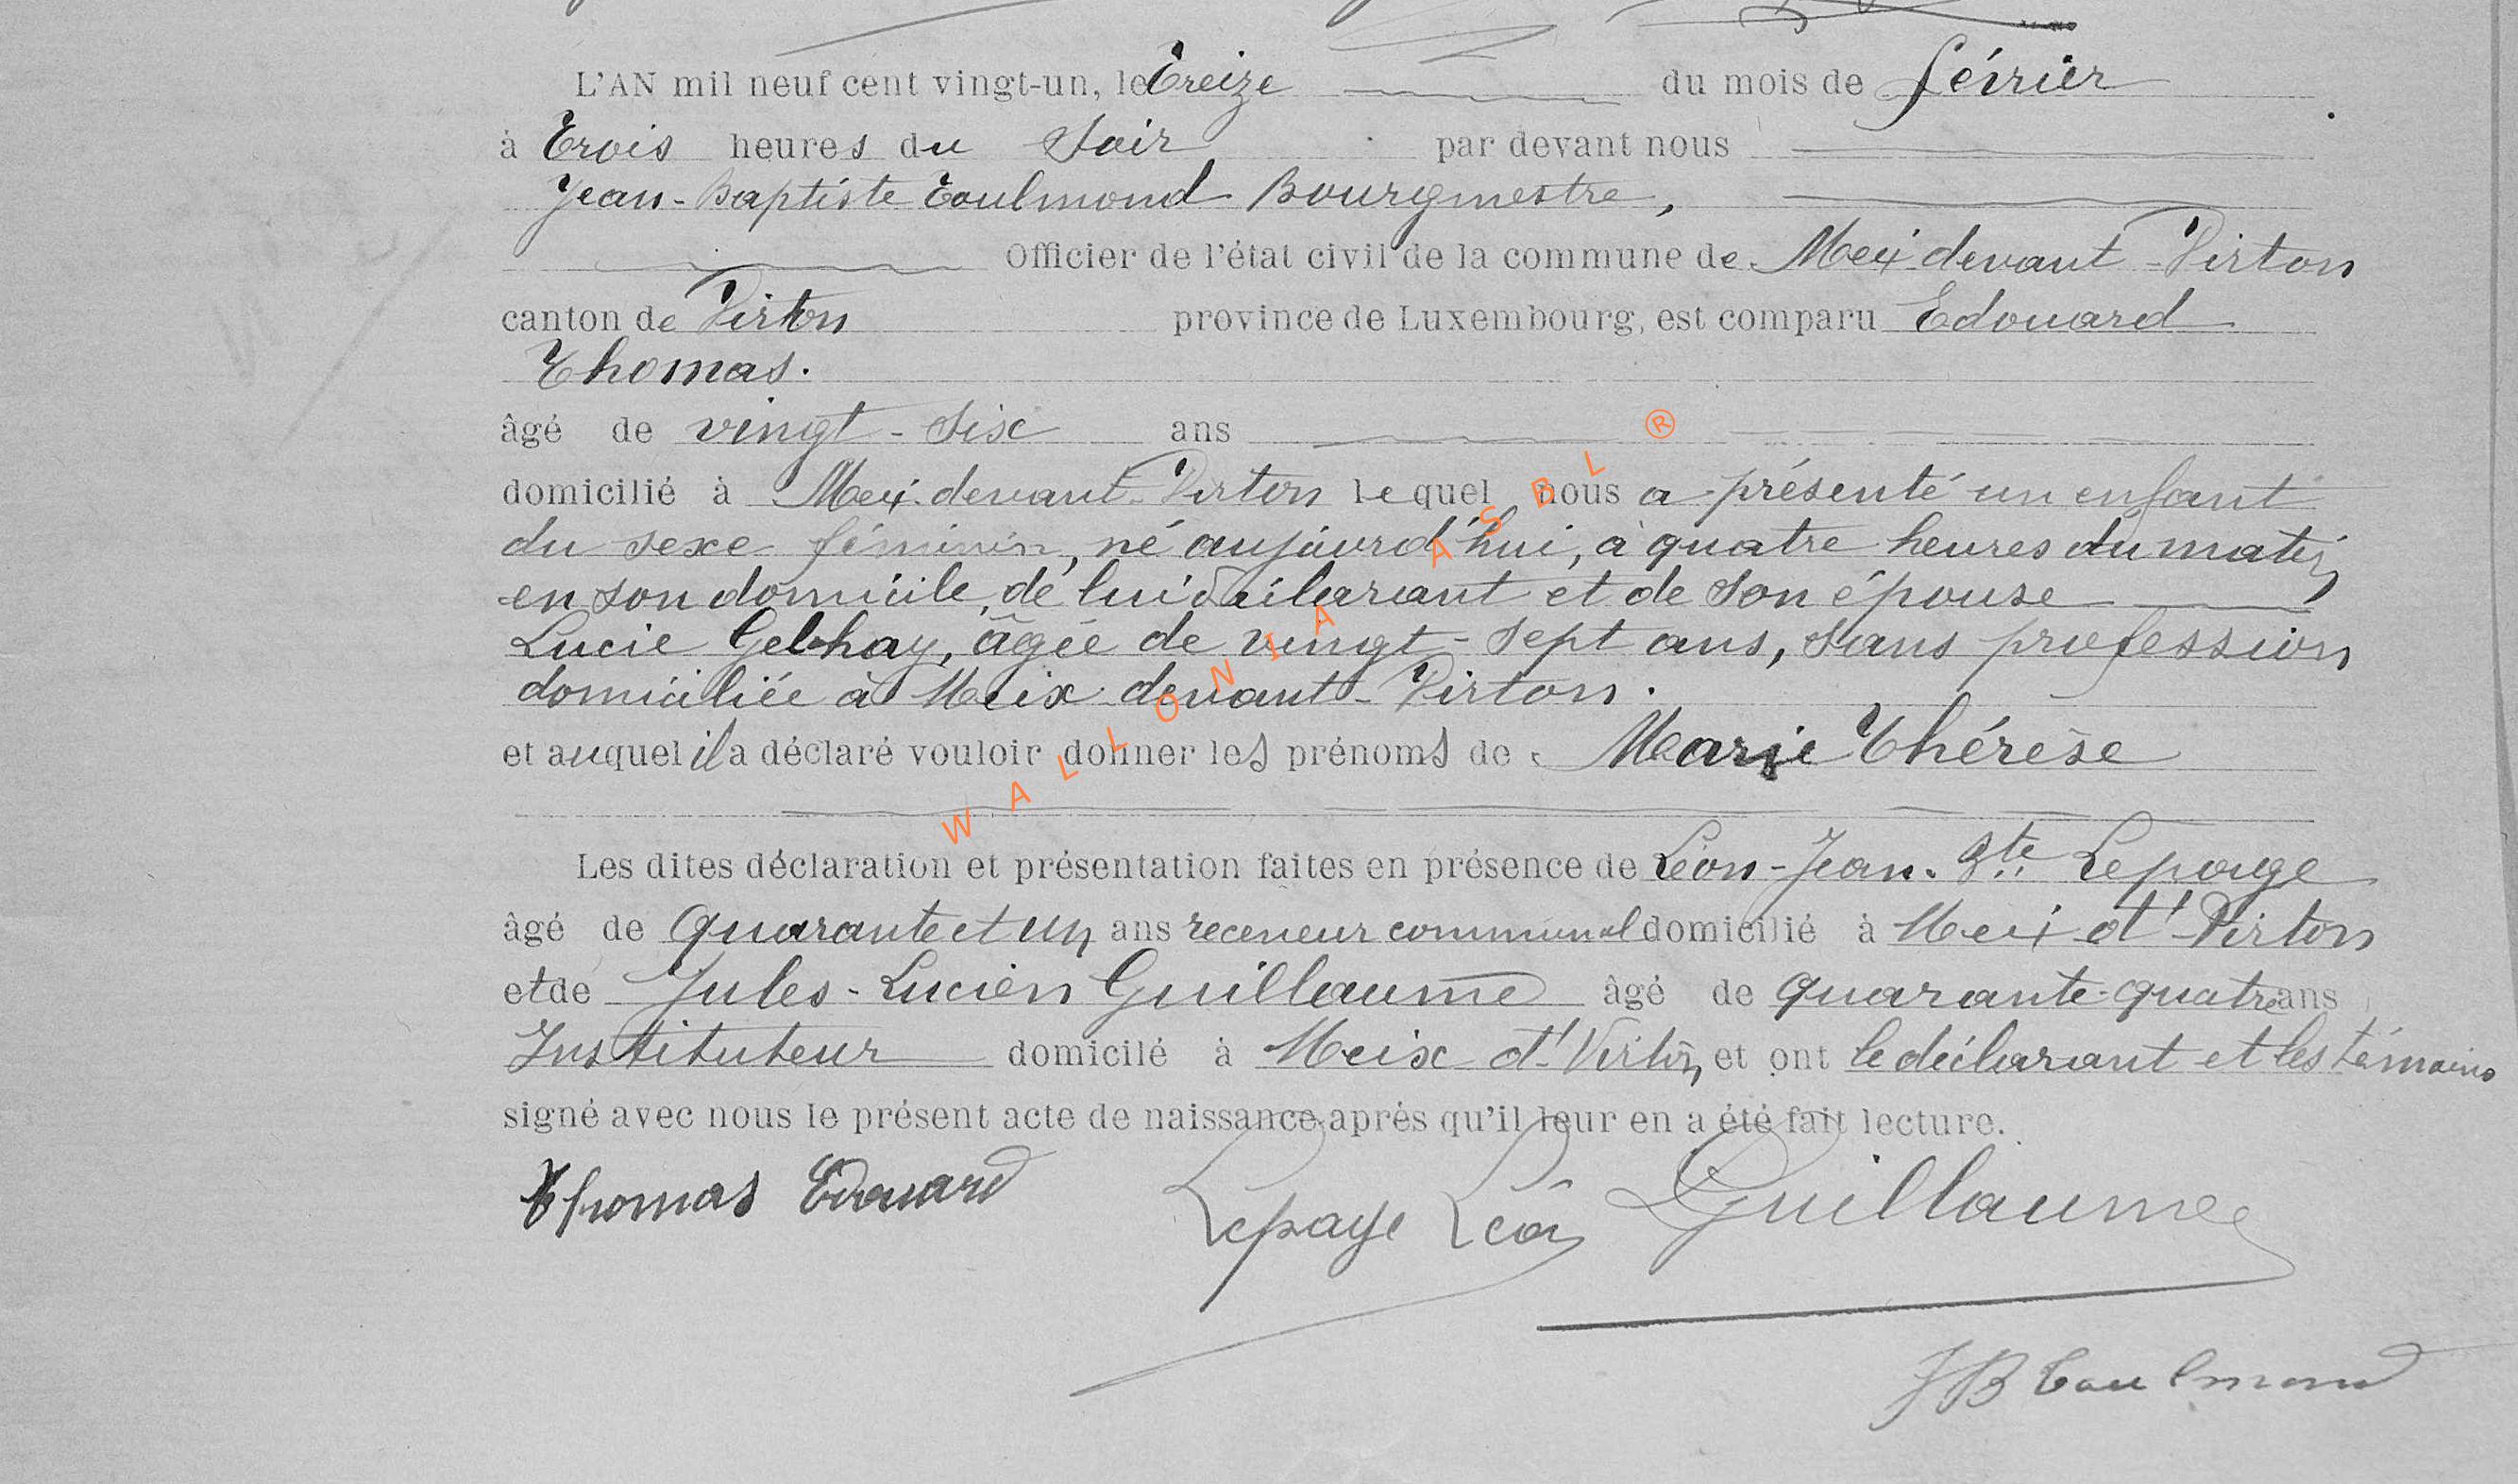 L'AN mil neuf cent vingt-un, le Treize du mois de février
à Trois heures du Soir par devant nous
Jean-Baptiste Toulmond Bourgmestre,
Officier de l'état civil de la commune de Meix devant Virton
canton de Virton province de Luxembourg, est comparu Edouard
Thomas.
âgé de vingt-six ans
domicilié à Meix devant Virton lequel nous a présenté un enfant
du sexe féminin, né aujourd'hui, à quatre heures du matin
en son domicile, de lui déclarant et de son épouse
Lucie Gelhay, âgée de vingt-sept ans, sans profession
domiciliée à Meix devant-Virton.
et auquel il a déclaré vouloir donner les prénoms de Marie Thérèse
Les dites déclaration et présentation faites en présence de Léon-Jean-Bte Lepage
âgé de quarante et un ans receveur communal domicilié à Meix dt Virton
et de Jules-Lucien Guillaume âgé de quarante-quatre ans
Instituteur domicilé à Meix dt Virton, et ont le déclarant et les témoins
signé avec nous le présent acte de naissance aprés qu'il leur en a été fait lecture.
Thomas Edouard Lepage Léon Guillaume
JB Toulmond
WALLONIA ASBL ®